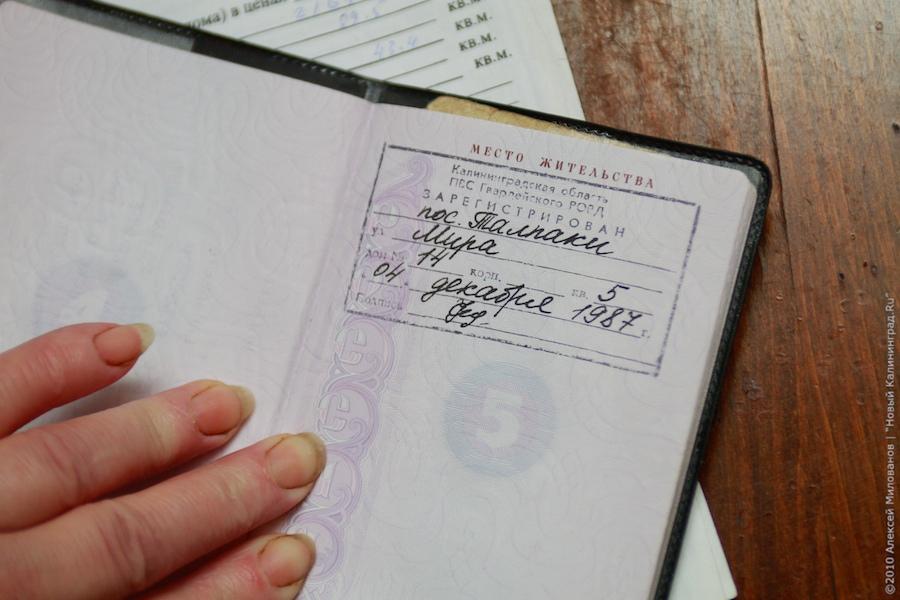 дома) в целях
кв.м.
кв.м.
43.4 кв.м.
МЕСТО ЖИТЕЛЬСТВА
Калининградская область
ПВС Гвардейского РОВД
ЗАРЕГИСТРИРОВАН
пос. Талпаки
ул Мира
дом № 14 корп. кв. 5
04 декабря 1987 г.
Подпись
5
©2010 Алексей Милованов | "Новый Калининград.Ru"